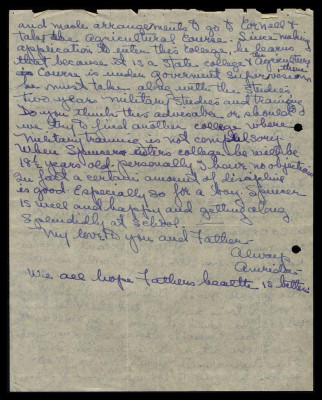 and made arrangements to go to Cornell &
take the Agricultural Course. Since making
application to enter this college, he learns
that because it is a State college & Agriculture
is Course is under Goverment Supervision
he must take along with the Studies there
two years military Studies and training
Do you think this advisable or should
we try to find another college where
military training is not compulsory
When Spencer enters college he will be
18½ years old. personally I have no objection
In fact a certain amount of discipline
is good Especially so for a boy. Spencer
is well and happy and getting along
Splendidly at School.
My love to you and Father
Always
We all hope Fathers health is better.